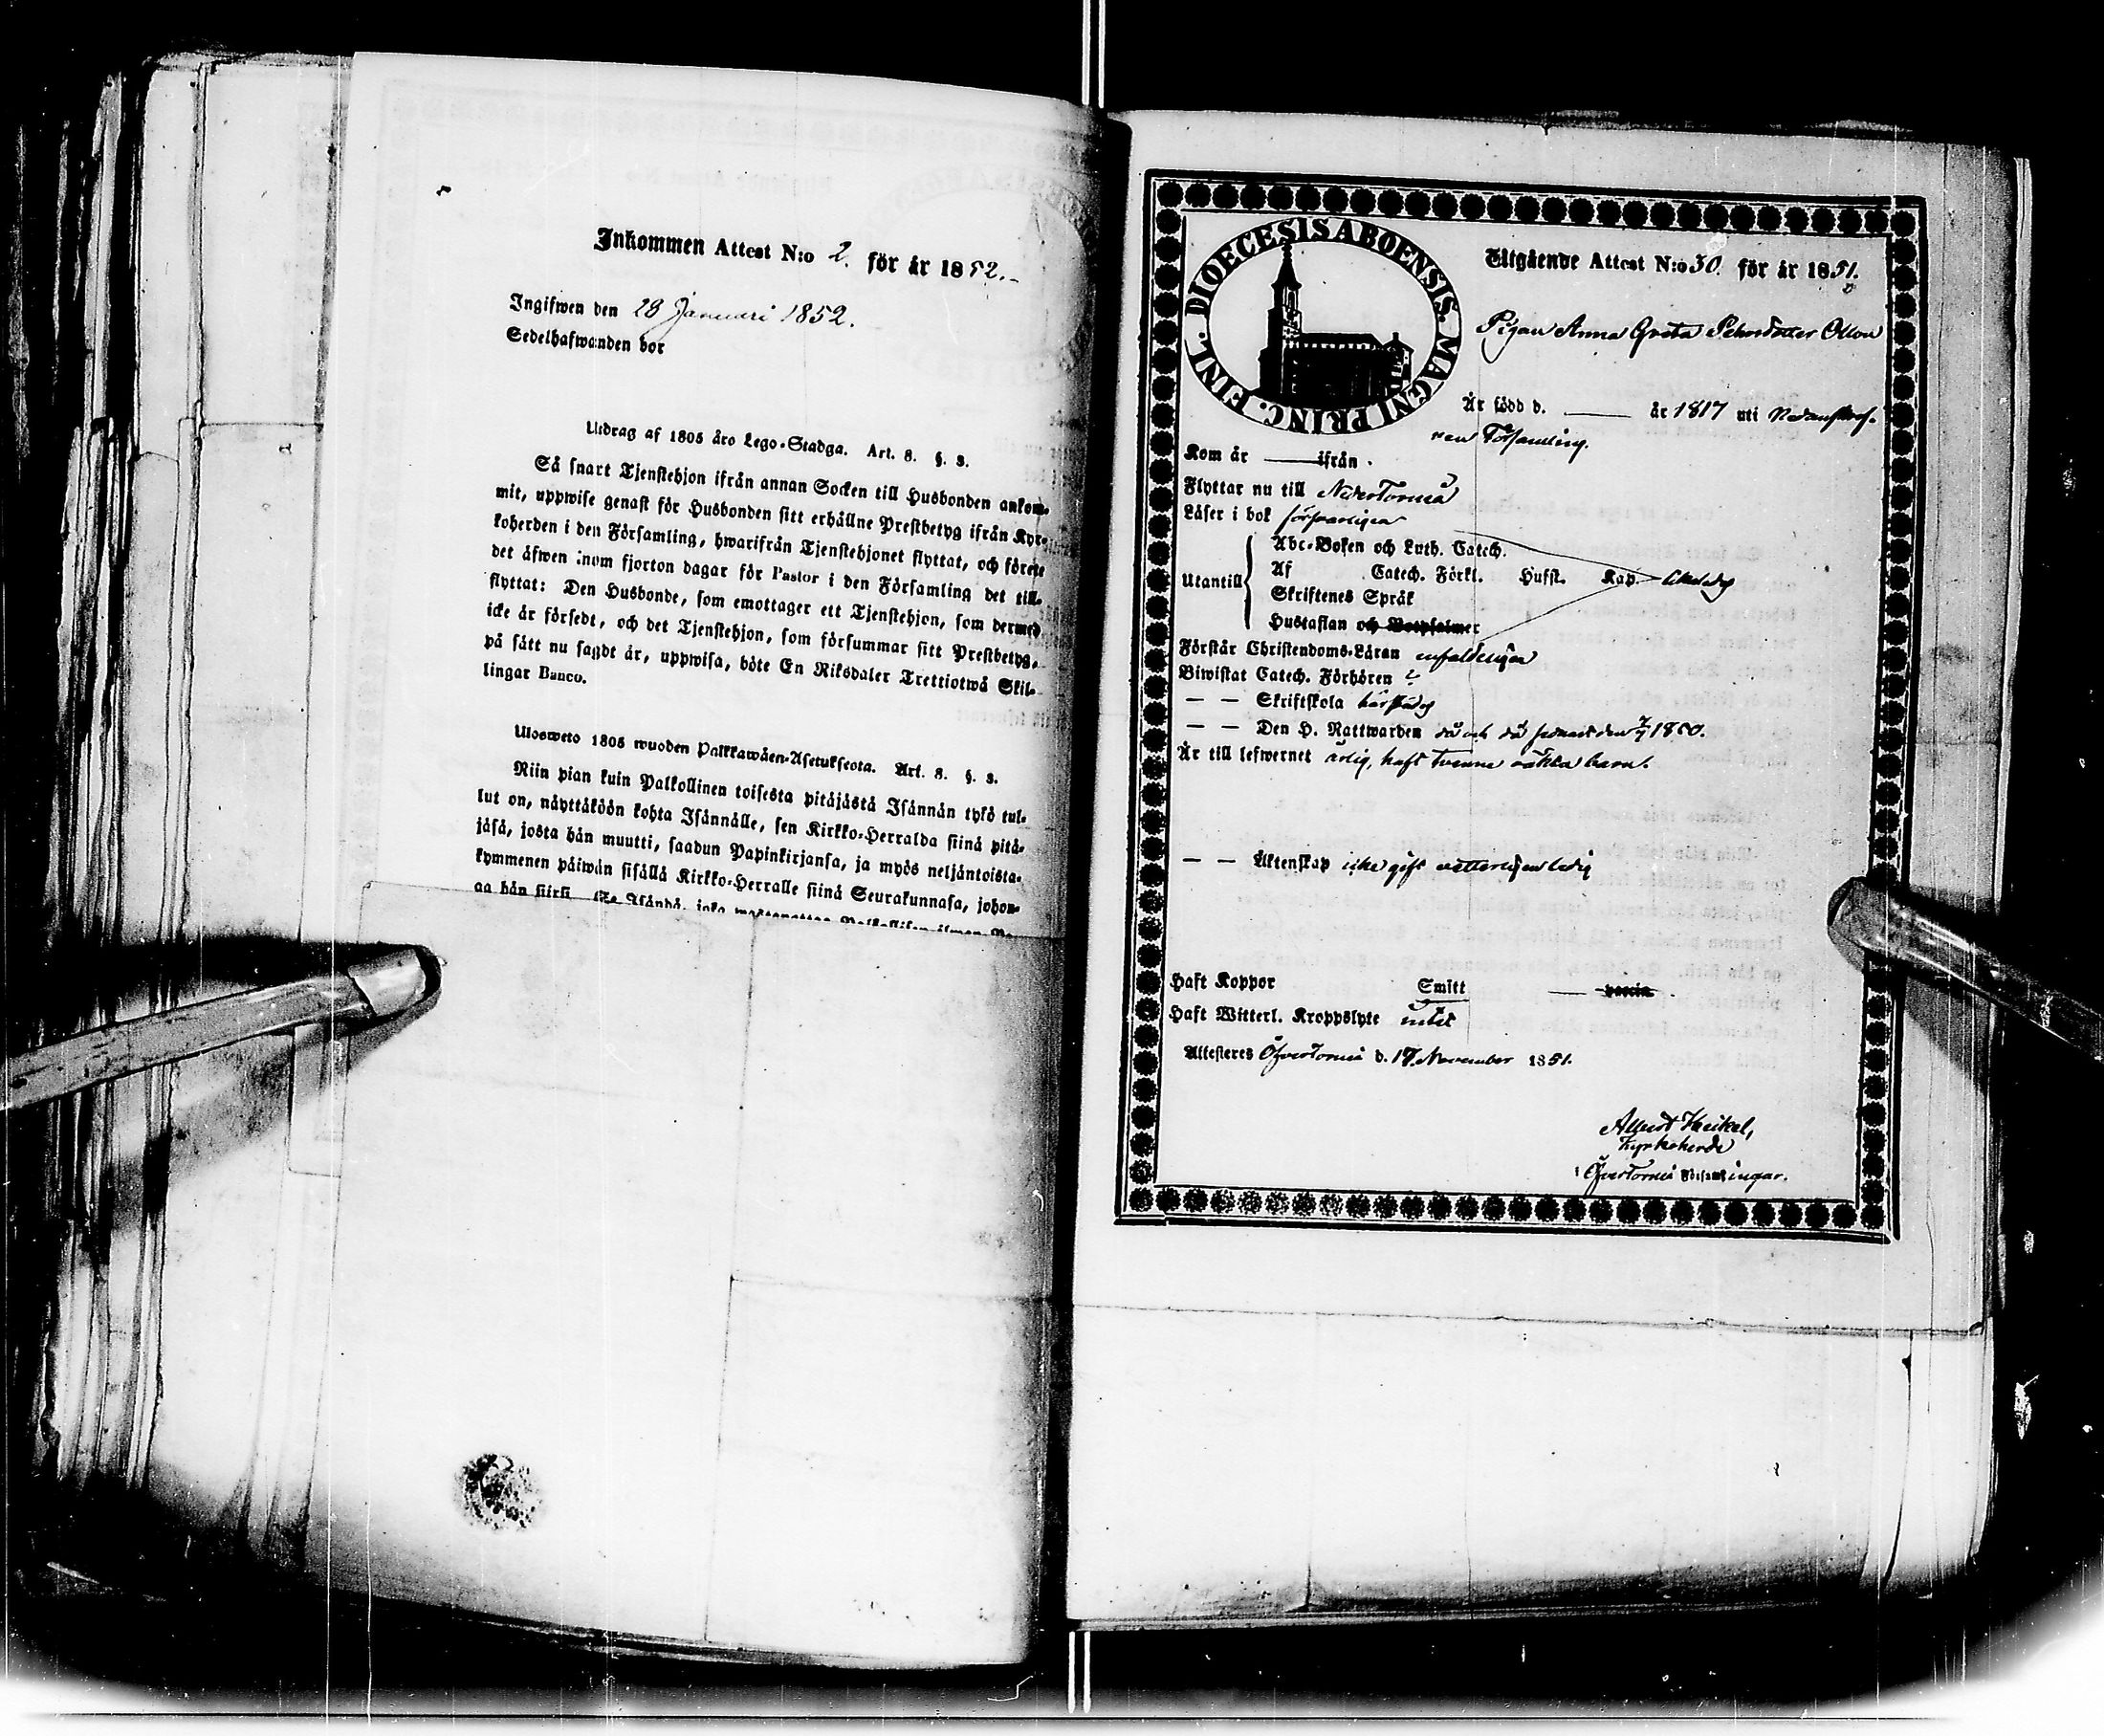 Inkommen Attest N:o 2. för år 1852.
Ingifwen den 28 Januari 1852.
Sedelhafwanden bor
Utdrag af 1805 års Lego-Stadga. Art. 8. §. 3.
Så snart Tjenstehjon ifrån annan Socken till Husbonden ankom-
mit, uppwise genast för Husbonden sitt erhållne Prestbetyg ifrån Kyr-
koherden i den Församling, hwarifrån Tjenstehjonet flyttat, och förete
det äfwen inom fjorton dagar för Pastor i den Församling det till-
flyttat: Den Husbonde, som emottager ett Tjenstehjon, som dermed
icke är försedt, och det Tjenstehjon, som försummar sitt Prestbetyg,
på sätt nu sagdt är, uppwisa, böte En Riksdaler Trettiotwå Skil-
lingar Banco.
Ulosweto 1805 wuoden Palkkawäen-Asetuksesta. Art. 8. §. 3.
Niin pian kuin Palkollinen toisesta pitäjästä Isännän tykö tul-
lut on, näyttäköön kohta Isännälle, sen Kirkko-Herralda siinä pitä-
jäsä, josta hän muutti, saadun Papinkirjansa, ja myös neljäntoista-
kymmenen päiwän sisällä Kirkko-Herralle siinä Seurakunnasa, johon-
ga hän siirsi
DIOECESIS ABOENSIS. MAGNI PRINC. FINL.
Utgående Attest N:o 30. för år 1851.
Pigan Anna Greta Pehrsdotter
År född d. — år 1817 uti
Församling.
Kom år — ifrån
Flyttar nu till NederTorneå
Läser i bok försvarligen
Abc-Boken och Luth. Catech.
Utantill Af Catech. Förkl. Husfl. Kap.
Skriftenes Språk
Hustaflan och Botpsalmer
Förstår Christendoms-Läran enfaldeligen
Biwistat Catech. Förhören
— — Skriftskola
— — Den H. Nattwarden då och då senast den 1850.
Är till lefwernet ärlig, haft tvenne oäkta barn.
— — Äktenskap icke gift vetterligen ledig
Haft Koppor Smitt —
Haft Witterl. Kroppslyte intet
Attesteres ÖfverTorneå d. 17 November 1851.
Albert Heikel,
Kyrkoherde
i ÖfverTorneå Församlingar.